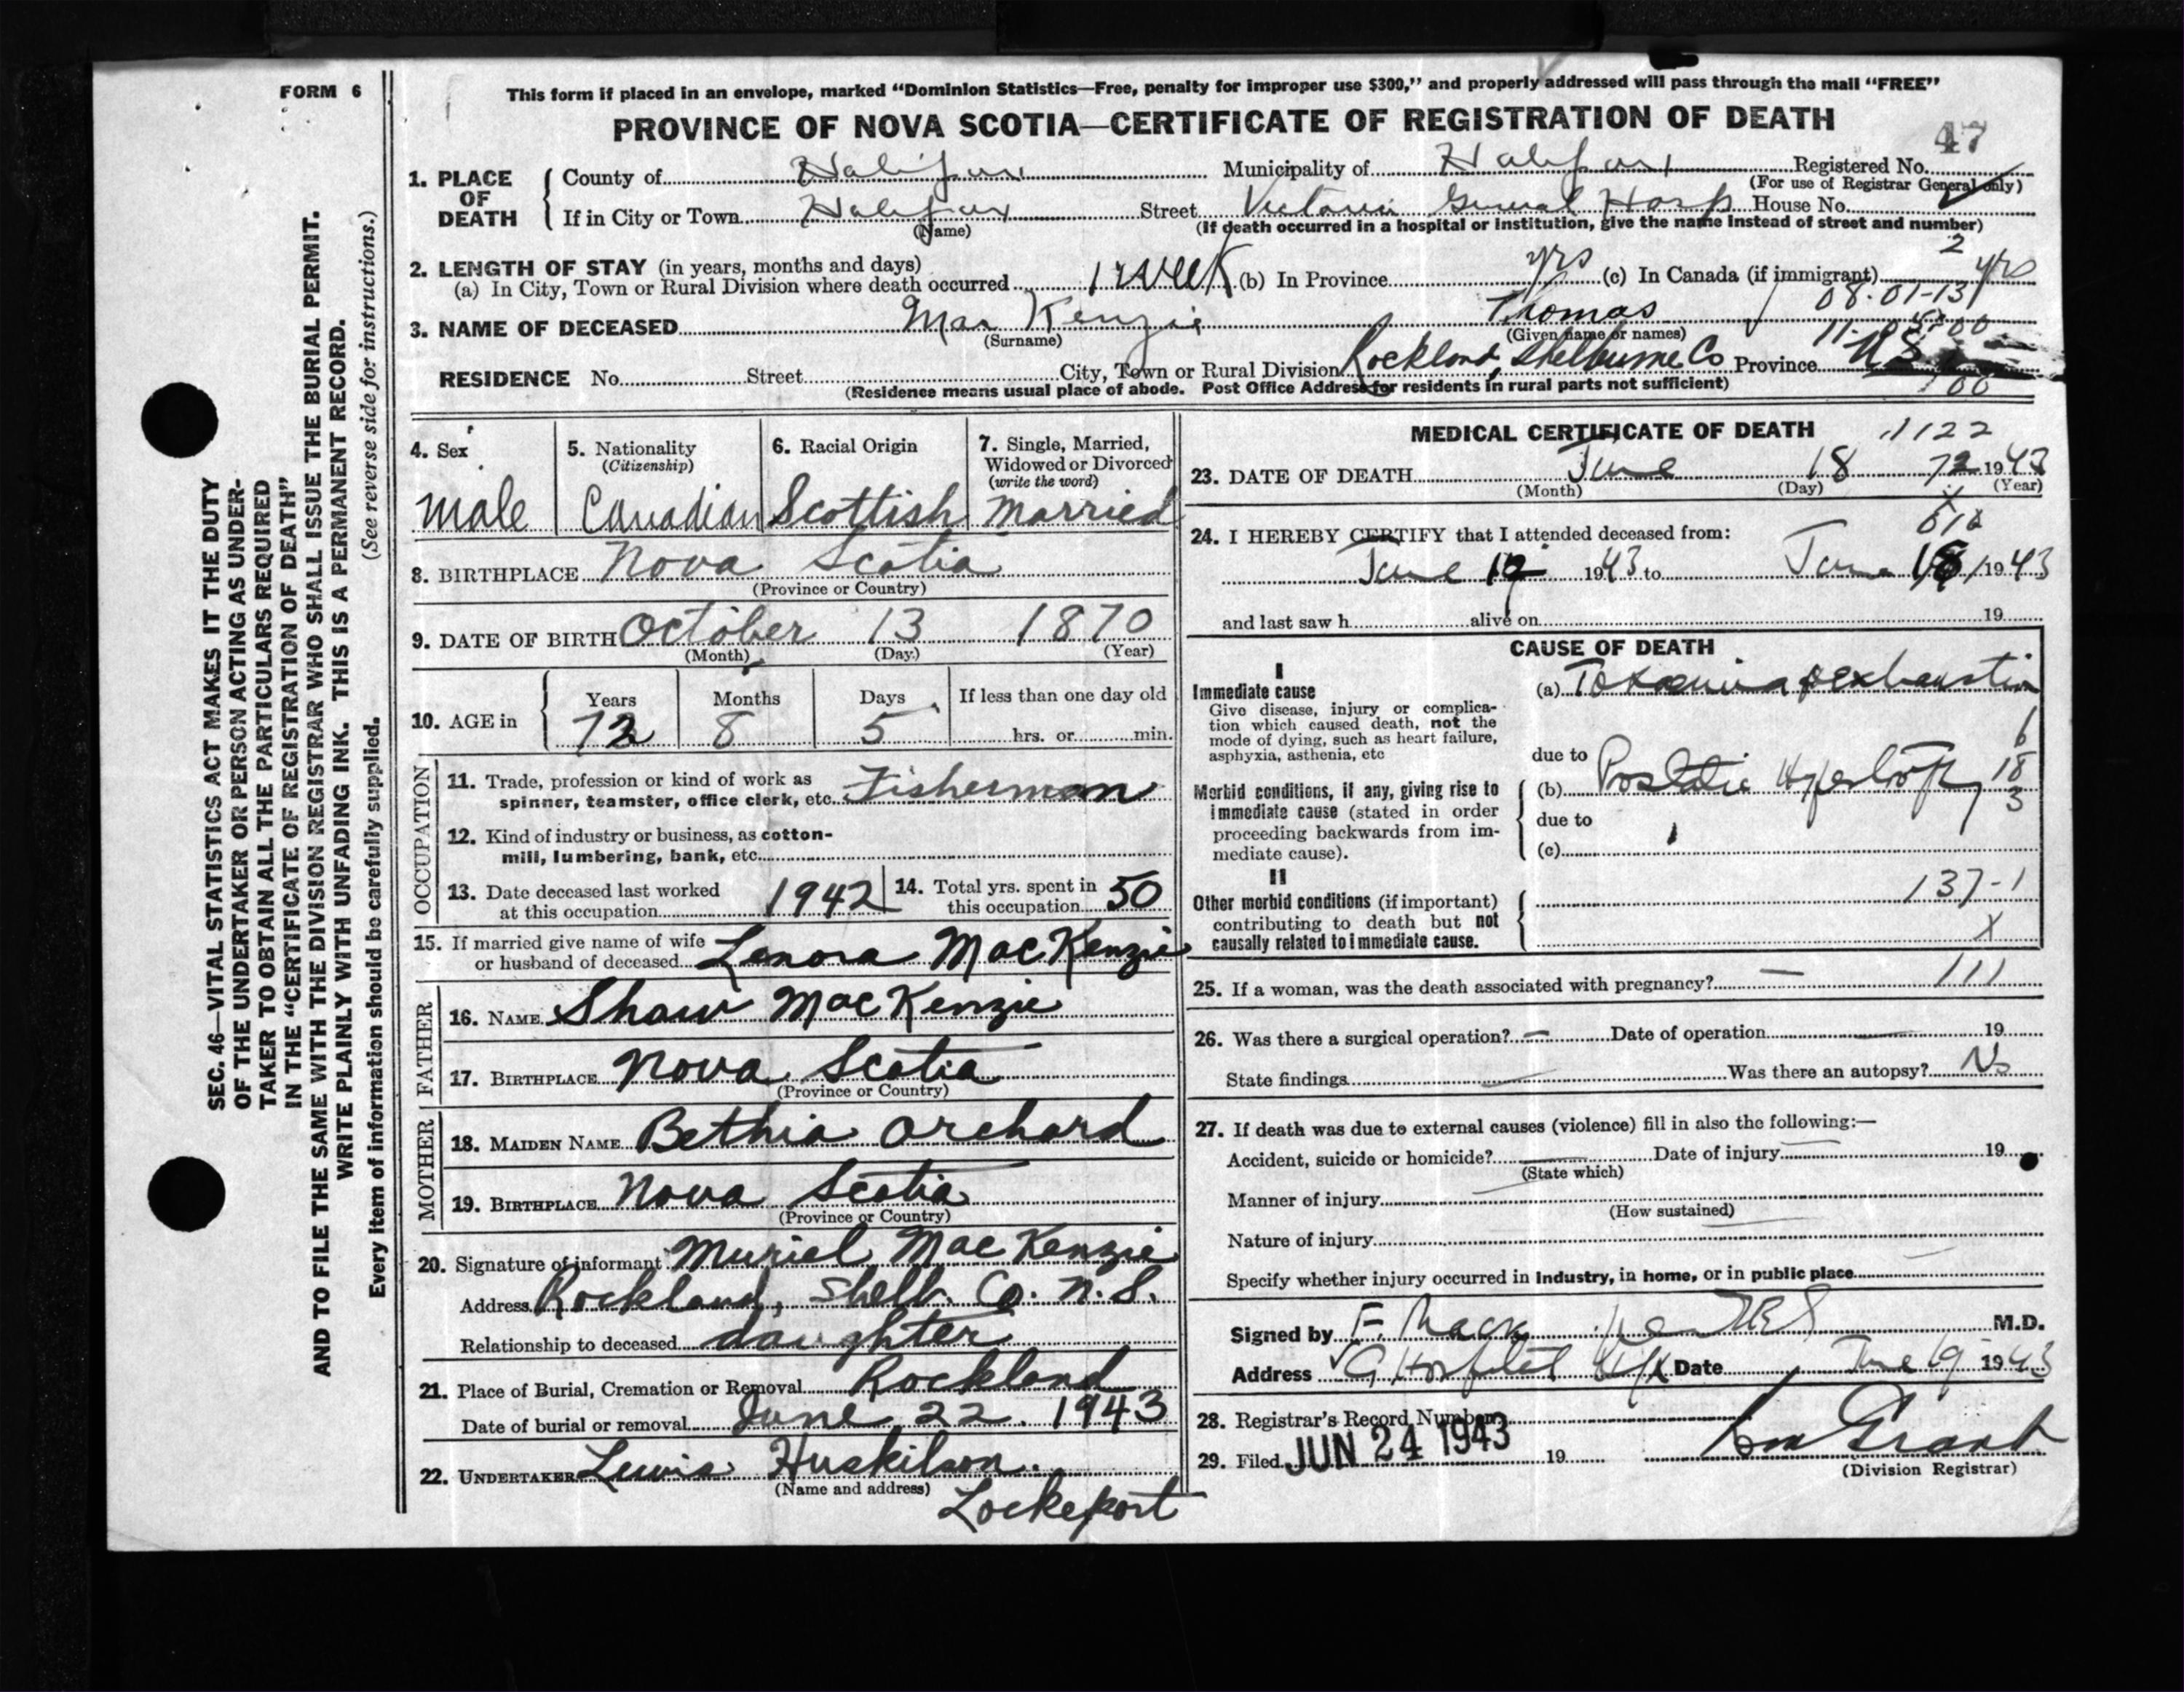 FORM 6
This form if placed in an envelope, marked "Dominion Statistics—Free, penalty for improper use $300," and properly addressed will pass through the mail "FREE"
PROVINCE OF NOVA SCOTIA—CERTIFICATE OF REGISTRATION OF DEATH
47
1. PLACE OF DEATH
County of Halifax Municipality of Halifax Registered No.
(For use of Registrar General only)
If in City or Town Halifax Street Victoria General Hosp House No.
(Name) (If death occurred in a hospital or institution, give the name instead of street and number)
2. LENGTH OF STAY (in years, months and days)
(a) In City, Town or Rural Division where death occurred 1 week (b) In Province yrs (c) In Canada (if immigrant) yrs
2
08.01-13
3. NAME OF DECEASED MacKenzie Thomas
(Surname) (Given name or names)
RESIDENCE No. Street City, Town or Rural Division Rockland, Shelburne Co Province N S
(Residence means usual place of abode. Post Office Address for residents in rural parts not sufficient)
100
4. Sex
male
5. Nationality
(Citizenship)
Canadian
6. Racial Origin
Scottish
7. Single, Married,
Widowed or Divorced
(write the word)
married
8. BIRTHPLACE Nova Scotia
(Province or Country)
9. DATE OF BIRTH October 13 1870
(Month) (Day) (Year)
10. AGE in
Years Months Days If less than one day old
72 8 5 hrs. or min.
OCCUPATION
11. Trade, profession or kind of work as
spinner, teamster, office clerk, etc. Fisherman
12. Kind of industry or business, as cotton-
mill, lumbering, bank, etc.
13. Date deceased last worked
at this occupation 1942
14. Total yrs. spent in
this occupation 50
15. If married give name of wife
or husband of deceased Lenora MacKenzie
FATHER
16. NAME Shaw MacKenzie
17. BIRTHPLACE Nova Scotia
(Province or Country)
MOTHER
18. MAIDEN NAME Bethia Orchard
19. BIRTHPLACE Nova Scotia
(Province or Country)
20. Signature of informant Muriel MacKenzie
Address Rockland, Shelb. Co. N.S.
Relationship to deceased daughter
21. Place of Burial, Cremation or Removal Rockland
Date of burial or removal June 22. 1943
22. UNDERTAKER Lewis Huskilson.
(Name and address)
Lockeport
MEDICAL CERTIFICATE OF DEATH
1122
23. DATE OF DEATH June 18 72 1943
(Month) (Day) (Year)
24. I HEREBY CERTIFY that I attended deceased from:
June 12 1943 to June 18 1943
and last saw h alive on 19
CAUSE OF DEATH
I
Immediate cause
Give disease, injury or complica-
tion which caused death, not the
mode of dying, such as heart failure,
asphyxia, asthenia, etc
(a) Toxaemia & exhaustion
due to
Morbid conditions, if any, giving rise to
immediate cause (stated in order
proceeding backwards from im-
mediate cause).
(b) Prostatic Hypertrophy
6
18
3
due to
(c)
II
Other morbid conditions (if important)
contributing to death but not
causally related to immediate cause.
137-1
X
25. If a woman, was the death associated with pregnancy? — 111
26. Was there a surgical operation? — Date of operation 19
State findings Was there an autopsy? No
27. If death was due to external causes (violence) fill in also the following:—
Accident, suicide or homicide? Date of injury 19
(State which)
Manner of injury
(How sustained)
Nature of injury
Specify whether injury occurred in industry, in home, or in public place
Signed by F. M.D.
Address V G Hospital Hfx Date June 19 1943
28. Registrar's Record Number
29. Filed JUN 24 1943 19
Grant
(Division Registrar)
SEC. 46—VITAL STATISTICS ACT MAKES IT THE DUTY
OF THE UNDERTAKER OR PERSON ACTING AS UNDER-
TAKER TO OBTAIN ALL THE PARTICULARS REQUIRED
IN THE "CERTIFICATE OF REGISTRATION OF DEATH"
AND TO FILE THE SAME WITH THE DIVISION REGISTRAR WHO SHALL ISSUE THE BURIAL PERMIT.
WRITE PLAINLY WITH UNFADING INK. THIS IS A PERMANENT RECORD.
Every item of information should be carefully supplied. (See reverse side for instructions.)